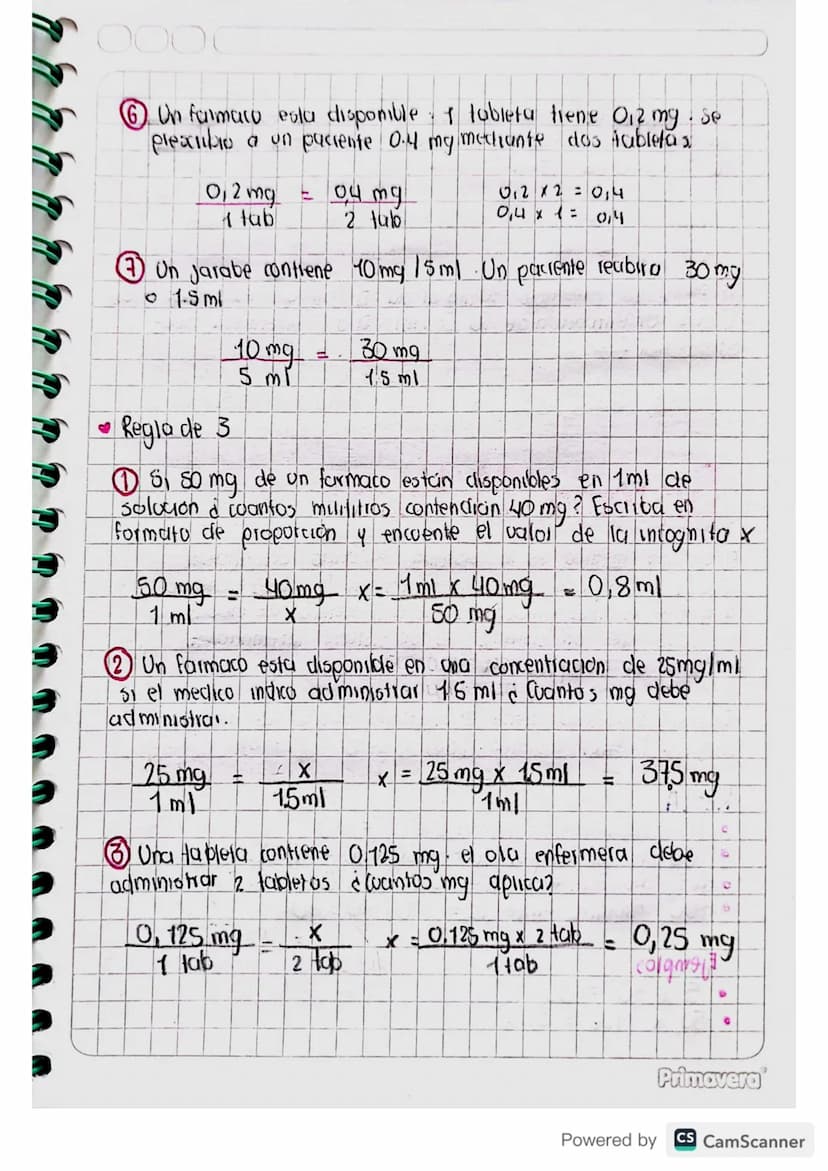 ⑥ Un farmaco esta disponible. 1 tableta tiene 0,2 mg. se
prescribio a un paciente 0.4 mg mediante dos tabletas
0,2 mg / 1 tab = 0,4 mg / 2 tab 0,2 x 2 = 0,4
0,4 x 1 = 0,4
⑦ Un jarabe contiene 10 mg / 5 ml. Un paciente recibira 30 mg
o 1.5 ml
10 mg / 5 ml = 30 mg / 1.5 ml
♥ Regla de 3
① Si 50 mg de un farmaco están disponibles en 1 ml de
solución ¿ cuantos mililitros contendición 40 mg? Escriba en
formato de proporción y encuente el valor de la incognita x
50 mg / 1 ml = 40 mg / x x = 1 ml x 40 mg / 50 mg = 0,8 ml
② Un farmaco esta disponible en una concentración de 25 mg/ml
si el medico indico administrar 15 ml ¿ Cuantos mg debe
administrar.
25 mg / 1 ml = x / 1.5 ml x = 25 mg x 1.5 ml / 1 ml = 37,5 mg
③ Una tableta contiene 0,125 mg. el ola enfermera debe
administrar 2 tabletas ¿Cuantos mg aplica?
0,125 mg / 1 tab = x / 2 tab x = 0.125 mg x 2 tab / 1 tab = 0,25 mg
Primavera
Powered by CS CamScanner